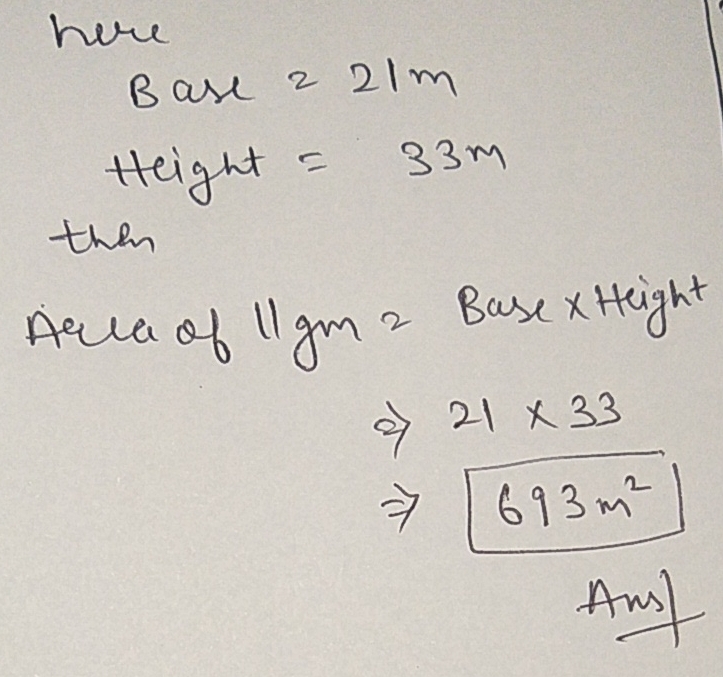 here
Base = 21m
Height = 33m
then
Area of ||gm = Base x Height
⇒ 21 x 33
⇒ 693 m²
Ans